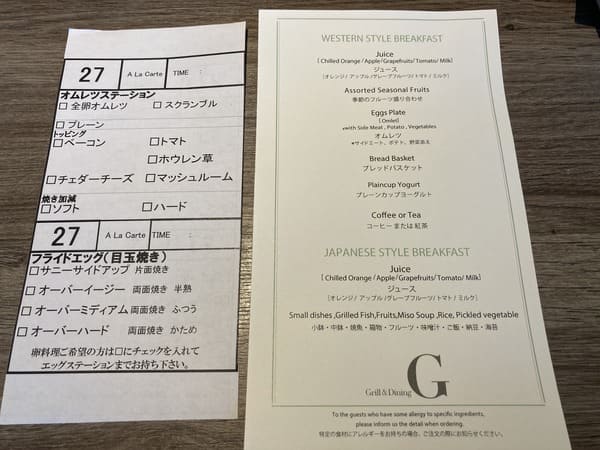 27
A La Carte
TIME :
オムレツステーション
□ 全卵オムレツ □ スクランブル
□ プレーン
トッピング
□ベーコン □トマト
□ホウレン草
□チェダーチーズ □マッシュルーム
焼き加減
□ソフト □ハード
27
A La Carte
TIME :
フライドエッグ(目玉焼き)
□サニーサイドアップ 片面焼き
□オーバーイージー 両面焼き 半熟
□オーバーミディアム 両面焼き ふつう
□オーバーハード 両面焼き かため
卵料理ご希望の方は□にチェックを入れて
エッグステーションまでお持ち下さい。
WESTERN STYLE BREAKFAST
Juice
[ Chilled Orange /Apple/Grapefruits/Tomato/ Milk]
ジュース
[オレンジ / アップル /グレープフルーツ/ トマト / ミルク]
Assorted Seasonal Fruits
季節のフルーツ盛り合わせ
Eggs Plate
[ Omlet]
with Side Meat , Potato , Vegetables
オムレツ
*サイドミート、ポテト、野菜添え
Bread Basket
ブレッドバスケット
Plaincup Yogurt
プレーンカップヨーグルト
Coffee or Tea
コーヒー または 紅茶
JAPANESE STYLE BREAKFAST
Juice
[ Chilled Orange /Apple/Grapefruits/Tomato/ Milk]
ジュース
[オレンジ / アップル /グレープフルーツ/ トマト / ミルク]
Small dishes ,Grilled Fish,Fruits,Miso Soup ,Rice, Pickled vegetable
小鉢・中鉢・焼魚・箱物・フルーツ・味噌汁・ご飯・納豆・海苔
Grill & Dining G
To the guests who have some allergy to specific ingredients,
please inform us the detail when ordering.
特定の食材にアレルギーをお持ちの場合、ご注文の際にお知らせください。